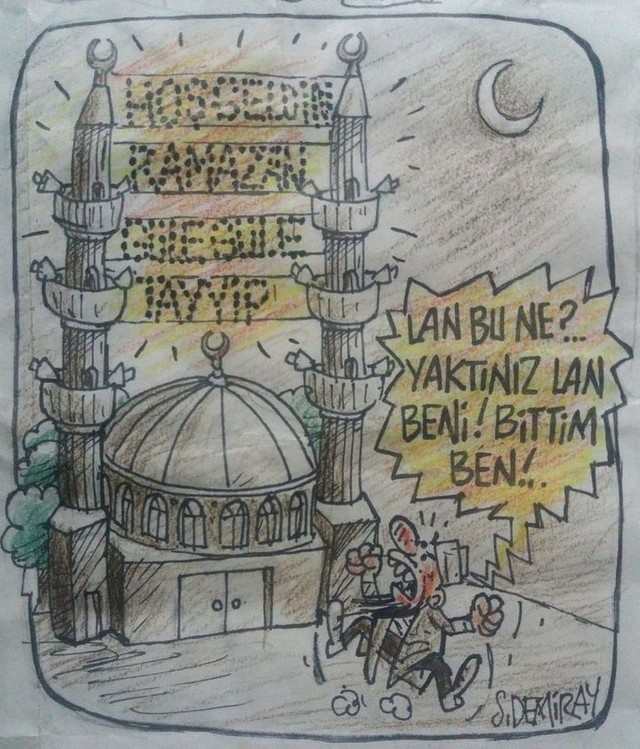 HOŞGELDİN
RAMAZAN
GÜLE GÜLE
TAYYİP
LAN BU NE?...
YAKTINIZ LAN
BENİ! BİTTİM
BEN!..
S.DEMİRAY